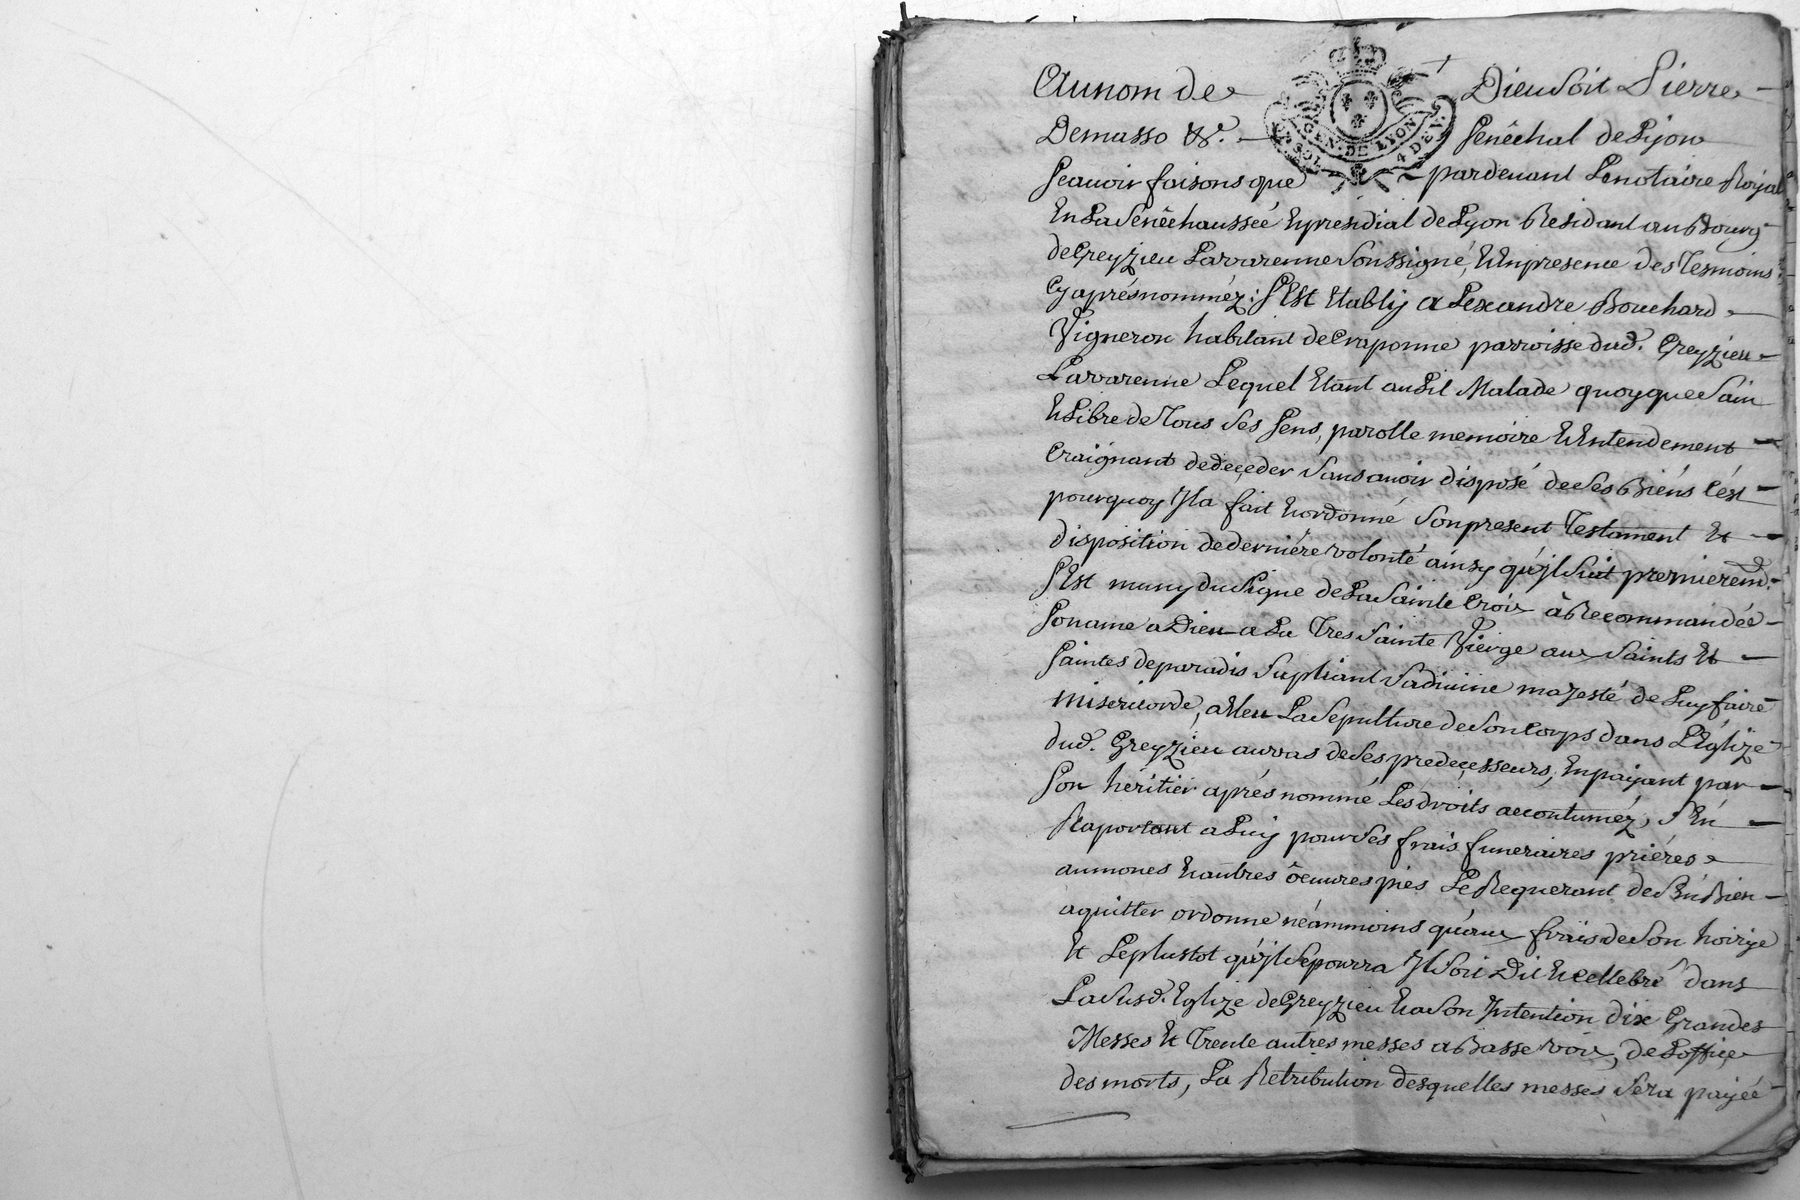 Au nom de Dieu soit Pierre
Demasso &c. Senêchal de Lyon
GEN. DE LYON
SOL. 4 DEN.
scavoir faisons que pardevant Le notaire Royal
En La Senêchaussée Et presidial de Lyon Residant au Bourg
de Greyzieu Lavarenne soussigné, Et En presence des Tesmoins
cy aprés nomméz; s'Est Etably Alexandre Bouchard
Vigneron habitant de Craponne parroisse dud. Greyzieu
Lavarenne Lequel Etant au Lit Malade quoyque sain
Et Libre de Tous ses sens, parolle memoire Et Entendement
Craignant de deçeder sans avoir disposé de ses Biéns c'est
pourquoy Il a fait Et ordonné son present Testament Et
disposition de derniére volonté ainsy qu'jl suit premierem.t
s'Est muny du signe de La Sainte Croix à Recommandée
son ame a Dieu a La Tres Sainte Vierge aux Saints Et
Saintes de paradis supliant sa divine majesté de Luy faire
misericorde, a Eleu La sepulture de son Corps dans L'Églize
dud. Greyzieu au vas de ses predeçesseurs, En paiyant par
son héritiér aprés nommé Les droits accoutuméz, s'En
Raportant a Luy pour ses frais funeraires priéres
aumones Et autres ôeuvres pies Le Requerant de s'En Bien
aquitter ordonne néammoins qu'aux fraïs de son hoirye
Et Le plustot qu'jl se pourra Il soit Dit Et cellebré dans
La susd. Eglize de Greyzieu Et a son Intention dix Grandes
Messes Et Trente autres messes a Basse voix, de L'office
des morts, La Retribution desquelles messes sera payéé